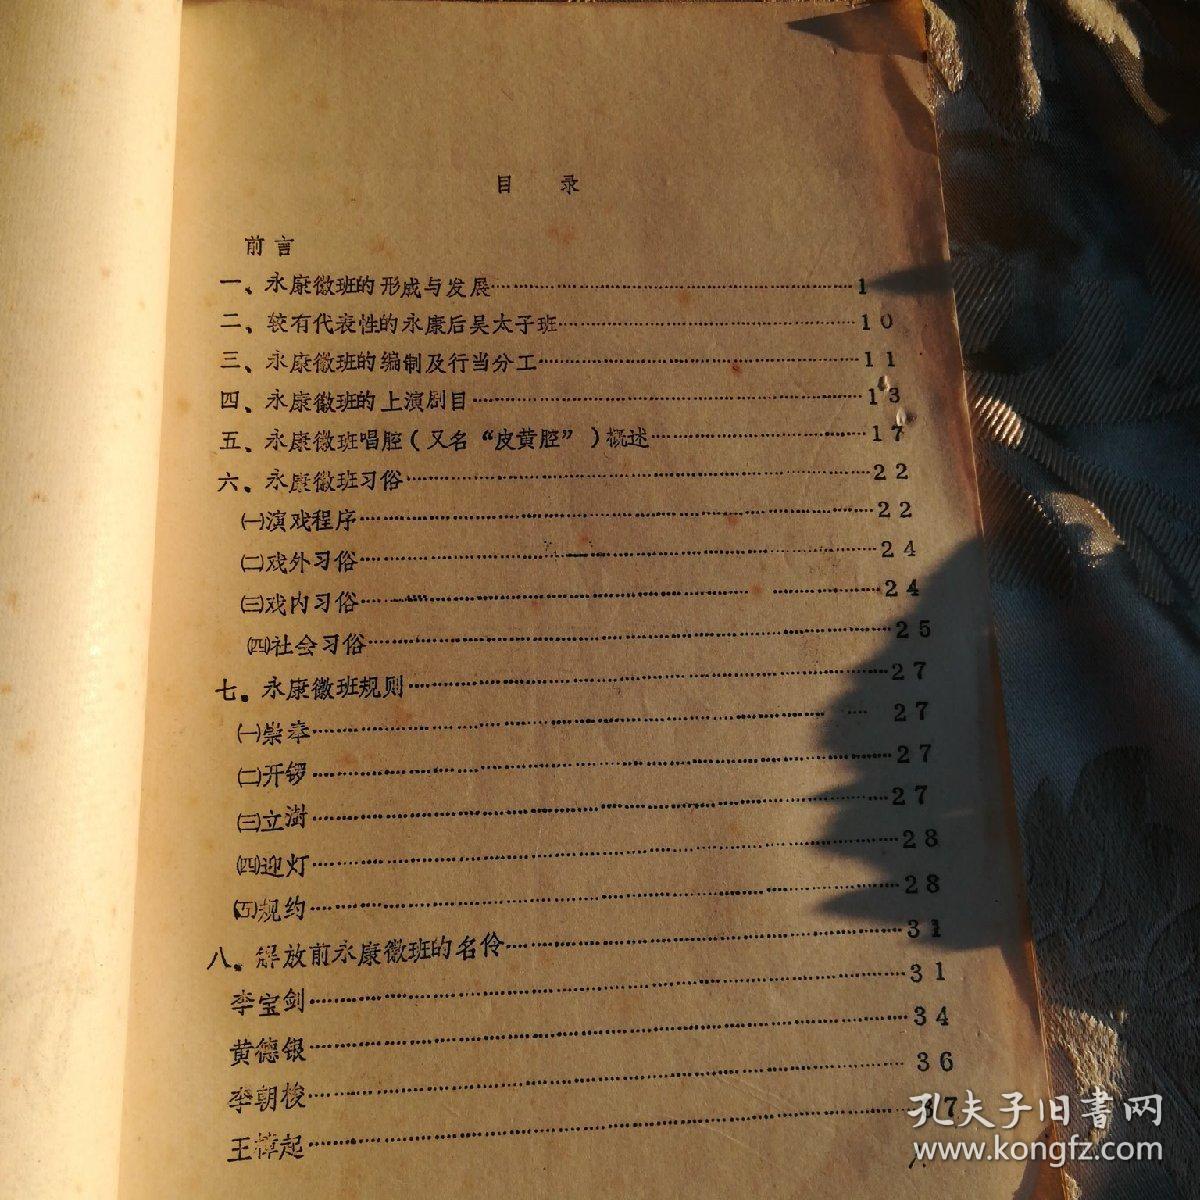 目 录
前言
一、永康徽班的形成与发展……1
二、较有代表性的永康后吴太子班……10
三、永康徽班的编制及行当分工……11
四、永康徽班的上演剧目……13
五、永康徽班唱腔(又名“皮黄腔”)概述……17
六、永康徽班习俗……22
㈠演戏程序……22
㈡戏外习俗……24
㈢戏内习俗……24
㈣社会习俗……25
七、永康徽班规则……27
㈠崇奉……27
㈡开锣……27
㈢立……27
㈣迎灯……28
㈤规约……28
八、解放前永康徽班的名伶……31
李宝剑……31
黄德银……34
李朝梭……36
王樟起……37
孔夫子旧書网
www.kongfz.com